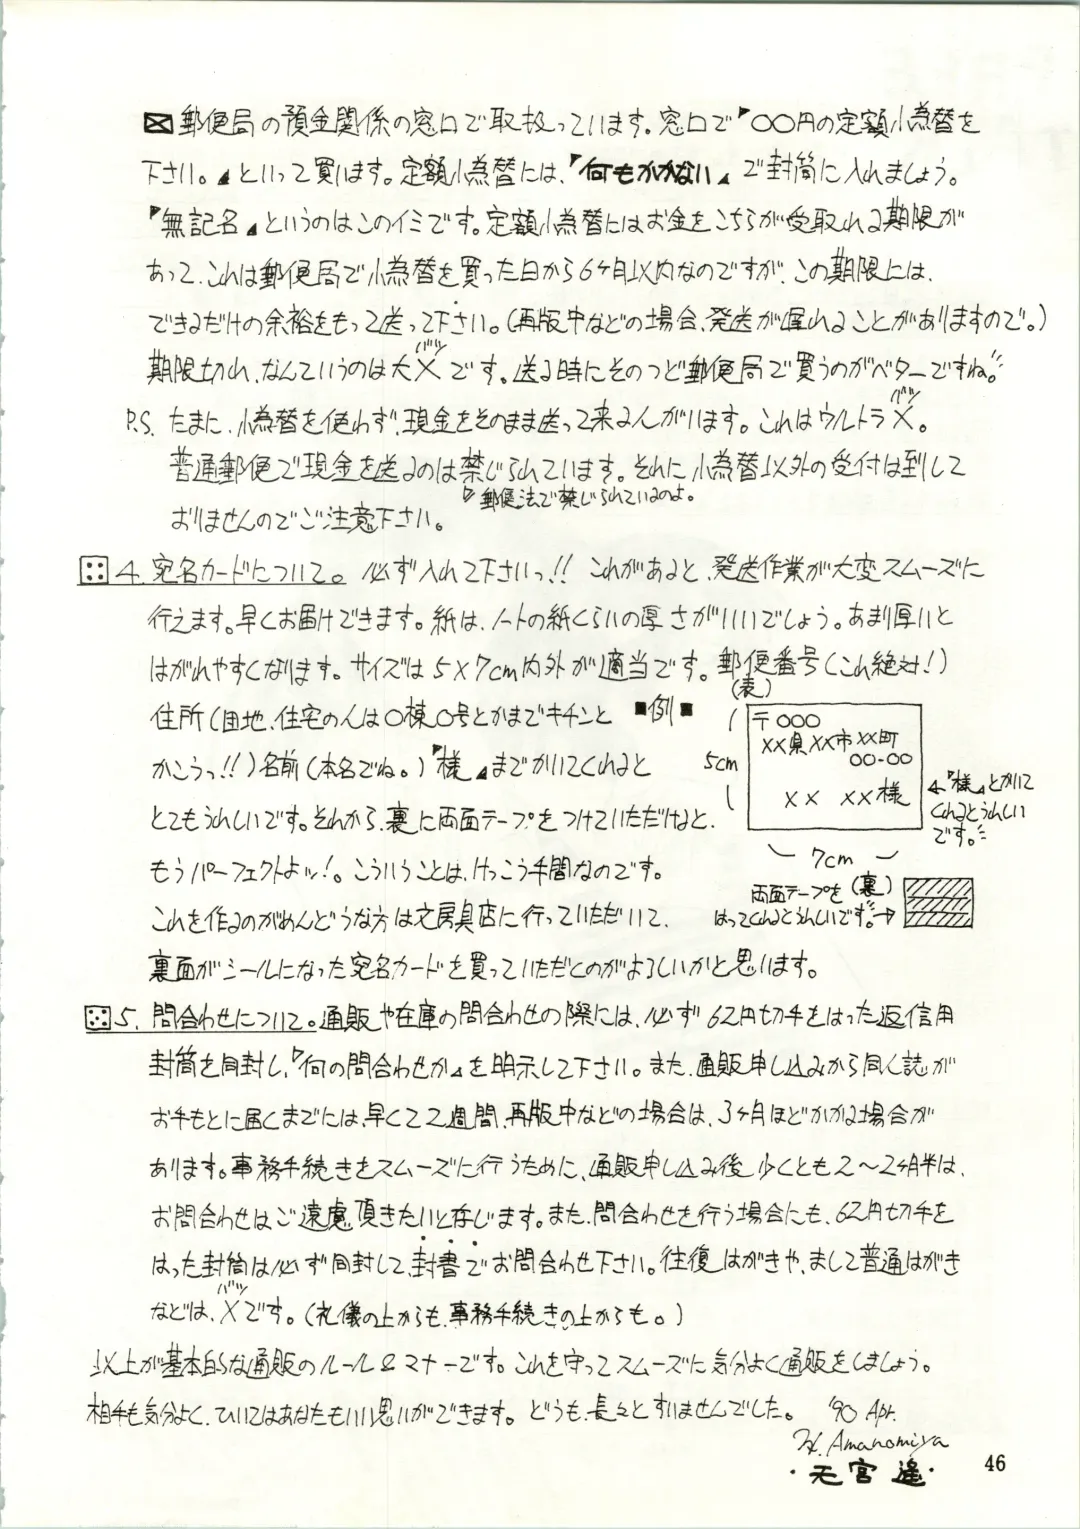 郵便局の預金関係の窓口で取扱っています。窓口で『〇〇円の定額小為替を
下さい。』といって買います。定額小為替には、『何もかかない』で封筒に入れましょう。
『無記名』というのはこのイミです。定額小為替にはお金をこちらが受取れる期限が
あって、これは郵便局で小為替を買った日から6ヶ月以内なのですが、この期限には、
できるだけの余裕をもって送って下さい。(再版中などの場合、発送が遅れることがありますので。)
バツ
期限切れ、なんていうのは大×です。送る時にそのつど郵便局で買うのがベターですね。
バツ
P.S. たまに、小為替を使わず、現金をそのまま送って来る人がいます。これはウルトラ×。
普通郵便で現金を送るのは禁じられています。それに小為替以外の受付は到して
郵便法で禁じられているのよ。
おりませんのでご注意下さい。
4. 宛名カードについて。必ず入れて下さいっ!! これがあると、発送作業が大変スムーズに
行えます。早くお届けできます。紙は、ノートの紙くらいの厚さがいいでしょう。あまり厚いと
はがれやすくなります。サイズは5×7cm内外が適当です。郵便番号(これ絶対!)
住所(団地、住宅の人は〇棟〇号とかまでキチンと
かこうっ!!)名前(本名でね。)『様』までかいてくれると
とてもうれしいです。それから、裏に両面テープをつけていただけると、
もうパーフェクトよッ!。こういうことは、けっこう手間なのです。
これを作るのがめんどうな方は文房具店に行っていただいて、
裏面がシールになった宛名カードを買っていただくのがよろしいかと思います。
■例■
(表)
5cm
〒〇〇〇
××県××市××町
〇〇-〇〇
×× ××様
『様』とかいて
くれるとうれしい
です。
7cm
両面テープを(裏)
はってくれるとうれしいです。→
5. 問合わせについて。通販や在庫の問合わせの際には、必ず62円切手をはった返信用
封筒を同封し、『何の問合わせか』を明示して下さい。また、通販申し込みから同人誌が
お手もとに届くまでには、早くて2週間、再版中などの場合は、3ヶ月ほどかかる場合が
あります。事務手続きをスムーズに行うために、通販申し込み後、少くとも2〜2ヶ月半は、
お問合わせはご遠慮頂きたいと存じます。また、問合わせを行う場合にも、62円切手を
はった封筒は必ず同封して、封書でお問合わせ下さい。往復はがきや、まして普通はがき
バツ
などは、×です。(礼儀の上からも、事務手続きの上からも。)
以上が基本的な通販のルール&マナーです。これを守ってスムーズに気分よく通販をしましょう。
相手も気分よく、ひいてはあなたもいい思いができます。どうも、長々とすいませんでした。 '90 Apr.
H. Amanomiya
・天宮遥・
46